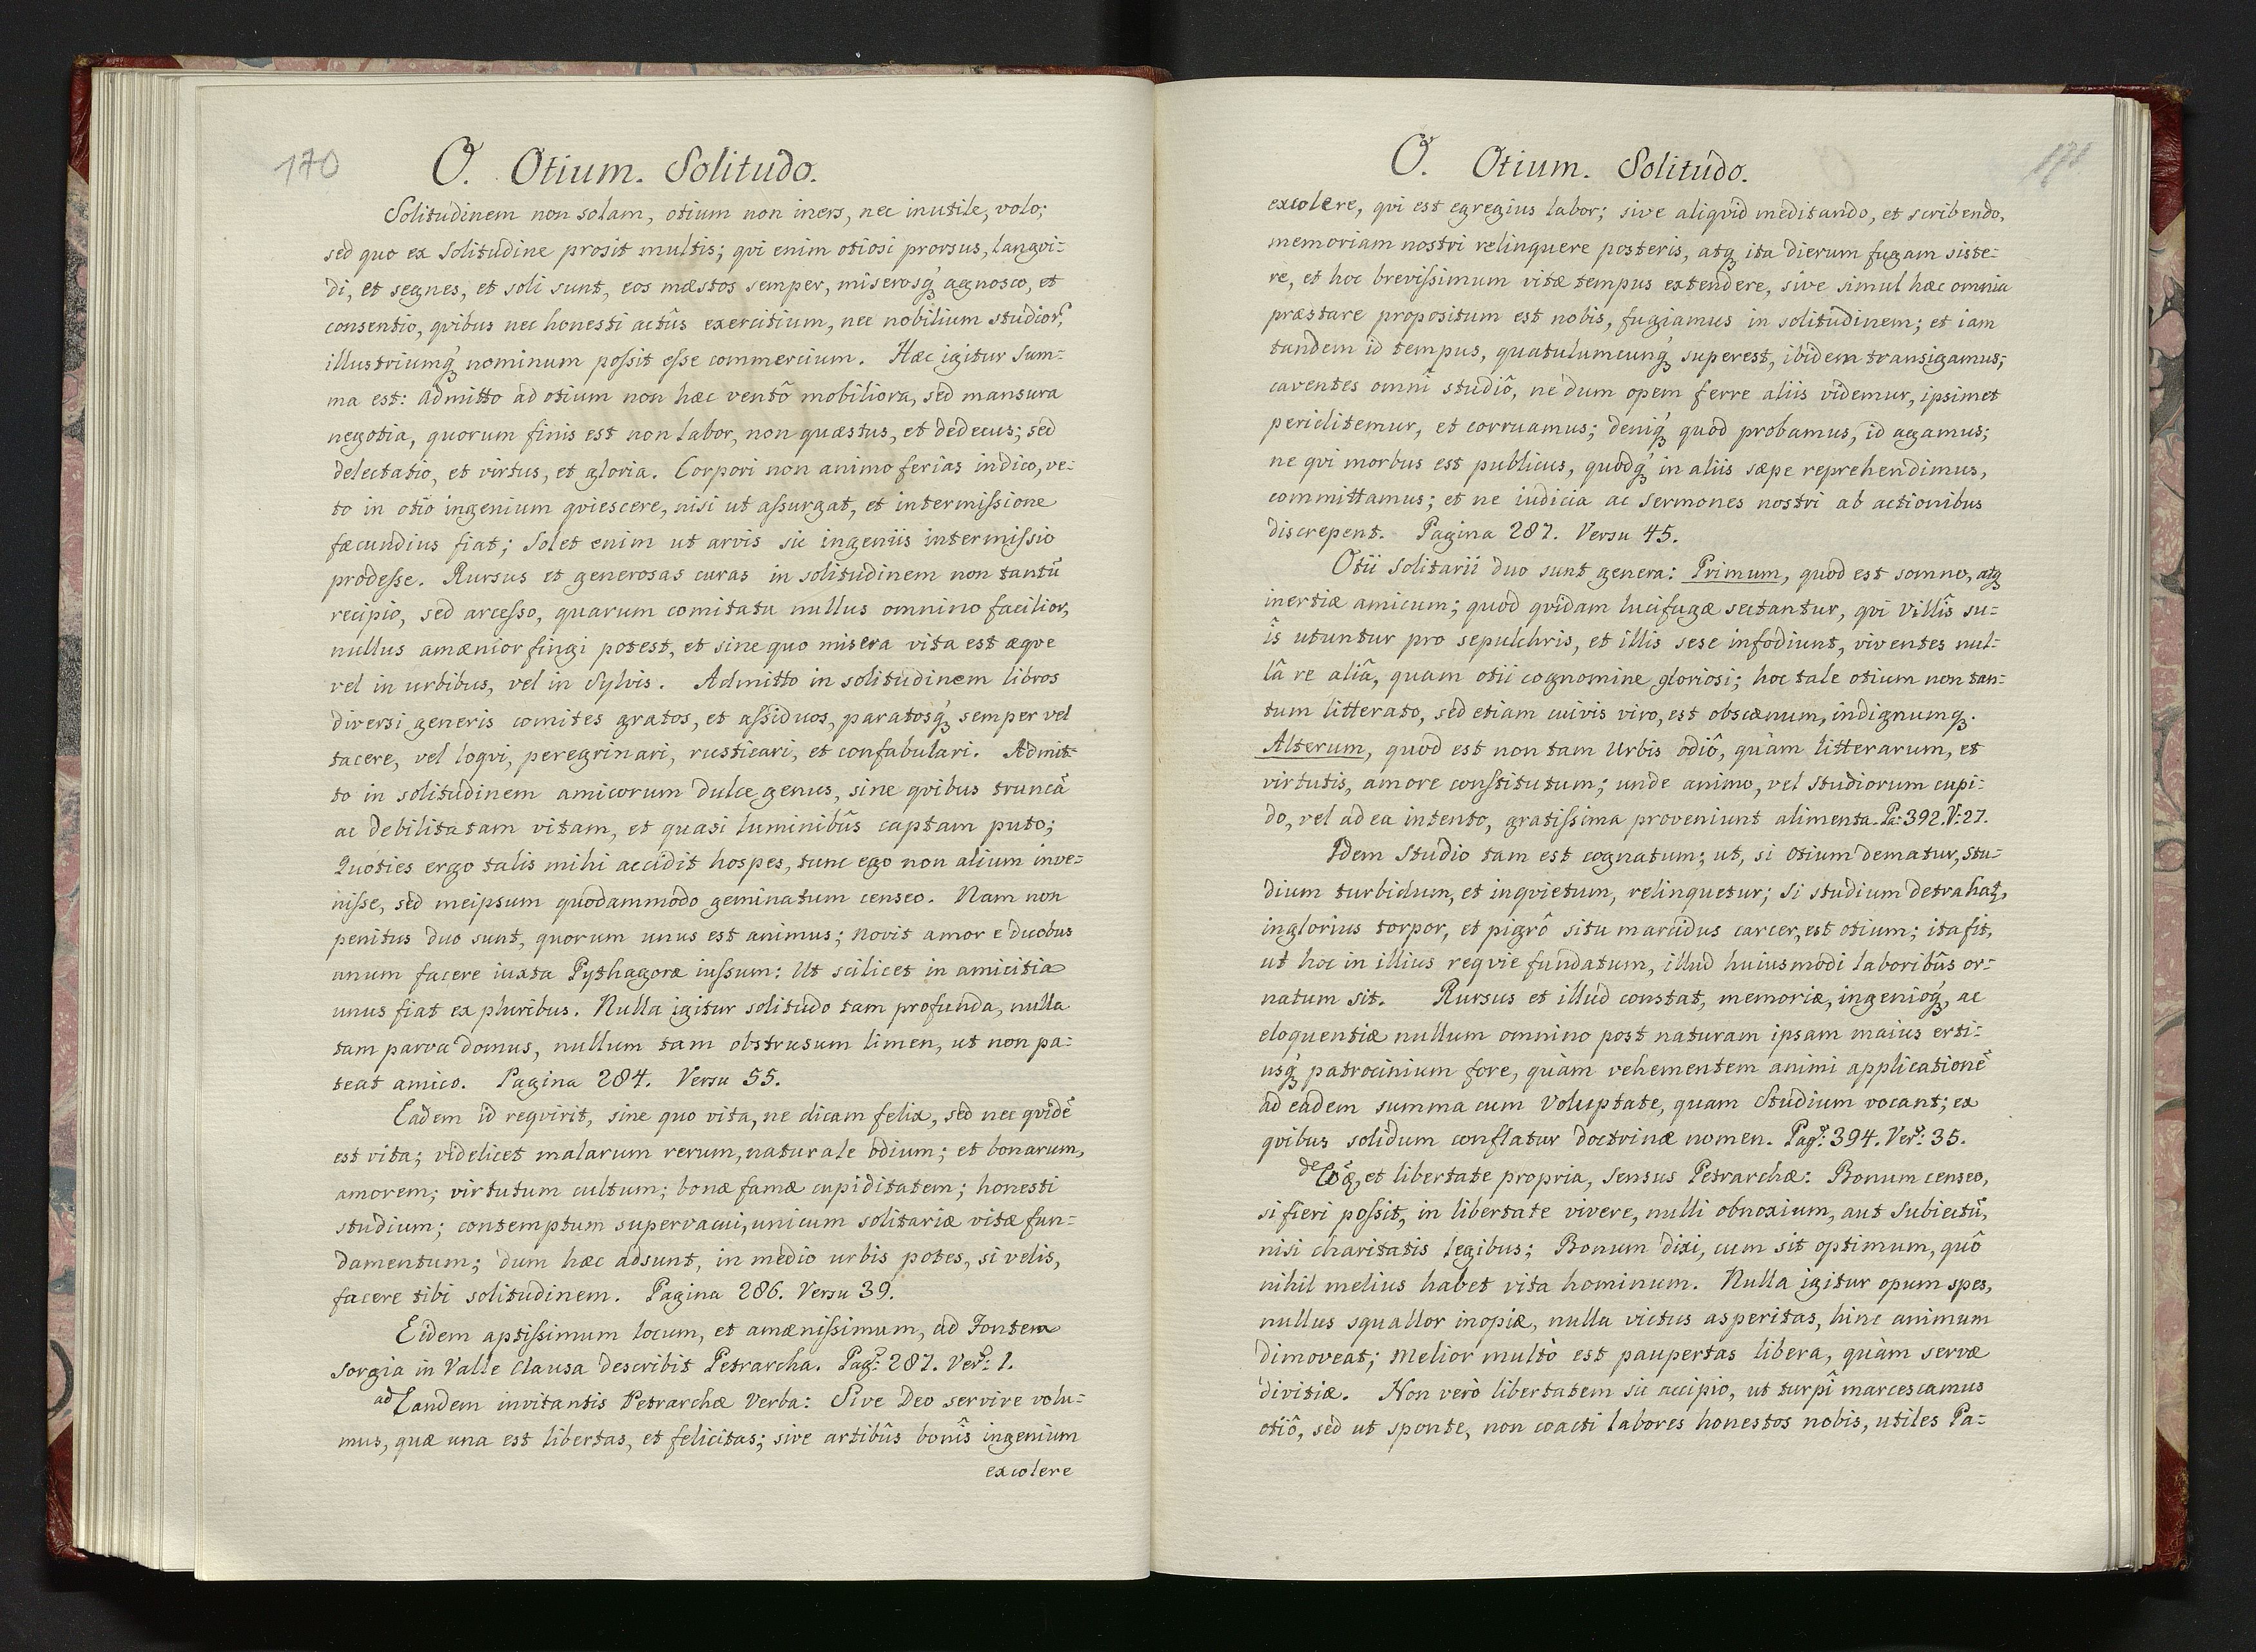 170
O. Otium. Solitudo.
Solitudinem non solam, otium non iners, nec inutile, volo;
sed quo ex solitudine prosit multis; qvi enim otiosi prorsus, langvi-
di, et segnes, et soli sunt, eos mæstos semper, miserosq́ agnosco, et
consentio, qvibus nec honesti actûs exercitium, nec nobilium studior,
illustriumq́ nominum poſsit eſse commercium. Hæc igitur sum-
ma est: Admitto ad otium non hæc ventô mobiliora, sed mansura
negotia, quorum finis est non labor, non quæstus, et dedecus; sed
delectatio, et virtus, et gloria. Corpori non animo ferias indico, ve-
to in otiô ingenium qviescere, nisi ut aſsurgat, et intermiſsione
fæcundius fiat; Solet enim ut arvis sic ingeniis intermiſsio
prodeſse. Rursus et generosas curas in solitudinem non tantū
recipio, sed arceſso, quarum comitatu nullus omnino facilior,
nullus amænior fingi potest, et sine quo misera vita est æqve
vel in urbibus, vel in Sylvis. Admitto in solitudinem libros
diversi generis comites gratos, et aſsiduos, paratosq́ semper vel
tacere, vel loqvi, peregrinari, rusticari, et confabulari. Admit-
to in solitudinem amicorum dulce genus, sine qvibus truncā
ac debilitatam vitam, et quasi luminibûs captam puto;
Quoties ergo talis mihi accidit hospes, tunc ego non alium inve-
niſse, sed meipsum quodammodo geminatum censeo. Nam non
penitus duo sunt, quorum unus est animus; novit amor e duobus
unum facere iuxta Pythagoræ iuſsum: Ut scilicet in amicitia
unus fiat ex pluribus. Nulla igitur solitudo tam profunda, nulla
tam parva domus, nullum tam obstrusum limen, ut non pa-
teat amico. Pagina 284. Versu 55.
Eadem id reqvirit, sine quo vita, ne dicam felix, sed nec qvidē
est vita; videlicet malarum rerum, naturale odium; et bonarum,
amorem; virtutum cultum; bonæ famæ cupiditatem; honesti
studium; contemptum supervacui, unicum solitariæ vitæ fun-
damentum; dum hæc adsunt, in medio urbis potes, si velis,
facere tibi solitudinem. Pagina 286. Versu 39.
Eidem aptiſsimum locum, et amæniſsimum, ad Fontem
Sorgia in Valle Clausa describit Petrarcha. Pag: 287. Ver: 1.
ad Eandem invitantis Petrarchæ Verba: Sive Deo servire volu-
mus, quæ una est libertas, et felicitas; sive artibûs bonîs ingenium
excolere
171
O. Otium. Solitudo.
excolere, qvi est egregius labor; sive aliqvid meditando, et scribendo,
memoriam nostri relinquere posteris, atq ita dierum fugam siste-
re, et hoc breviſsimum vitæ tempus extendere, sive simul hæc omnia
præstare propositum est nobis, fugiamus in solitudinem; et iam
tandem id tempus, quatulumcunq́ superest, ibidem transigamus;
caventes omnî studiô, ne dum opem ferre aliis videmur, ipsimet
periclitemur, et corruamus; deniq́ quod probamus, id agamus;
ne qvi morbus est publicus, quodq́ in aliis sæpe reprehendimus,
committamus; et ne iudicia ac sermones nostri ab actionibus
discrepent. Pagina 287. Versu 45.
Otii solitarii duo sunt genera: Primum, quod est somno, atq
inertiæ amicum; quod qvidam lucifugæ sectantur, qvi Villîs su-
îs utuntur pro sepulchris, et illis sese infodiunt, viventes nul-
lâ re aliâ, quam otii cognomine gloriosi; hoc tale otium non tan-
tum litterato, sed etiam cuivis viro, est obscænum, indignumq.
Alterum, quod est non tam Urbis odiô, quàm litterarum, et
virtutis, amore constitutum; unde animo, vel studiorum cupi-
do, vel ad ea intento, gratiſsima proveniunt alimenta. Pa: 392. V: 27.
Idem Studio tam est cognatum; ut, si Otium dematur, stu-
dium turbidum, et inqvietum, relinquetur; Si studium detrahat,
inglorius torpor, et pigrô situ marcidus carcer, est otium; ita fit,
ut hoc in illius reqvie fundatum, illud huiusmodi laboribûs or-
natum sit. Rursus et illud constat, memoriæ, ingenioq́, ac
eloquentiæ nullum omnino post naturam ipsam maius erti-
usq́ patrocinium fore, quàm vehementem animi applicationē
ad eadem summa cum Voluptate, quam Studium vocant; ex
qvibus solidum conflatur doctrinæ nomen. Pag: 394. Ver: 35.
et libertate propria, sensus Petrarchæ: Bonum censeo,
si fieri poſsit, in libertate vivere, nulli obnoxium, aut Subiectū,
nisi charitatis legibus; Bonum dixi, cum sit optimum, quô
nihil melius habet vita hominum. Nulla igitur opum spes,
nullus squallor inopiæ, nulla victus asperitas, hinc animum
dimoveat; Melior multò est paupertas libera, quàm servæ
divitiæ. Non verò libertatem sic accipio, ut turpî marcescamus
otiô, sed ut sponte, non coacti labores honestos nobis, utiles Pa-